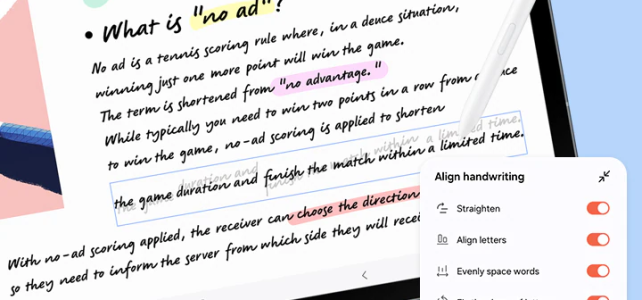 • What is "no ad"?
No ad is a tennis scoring rule where, in a deuce situation,
winning just one more point will win the game.
The term is shortened from "no advantage."
While typically you need to win two points in a row from
to win the game, no-ad scoring is applied to shorten
the game duration and finish the match within a limited time.
With no-ad scoring applied, the receiver can choose the direction
so they need to inform the server from which side they will
Align handwriting
Straighten
Align letters
Evenly space words